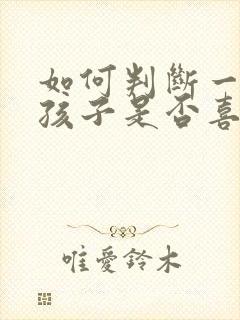 如何判斷一
孩子是否喜
唯愛鈴木